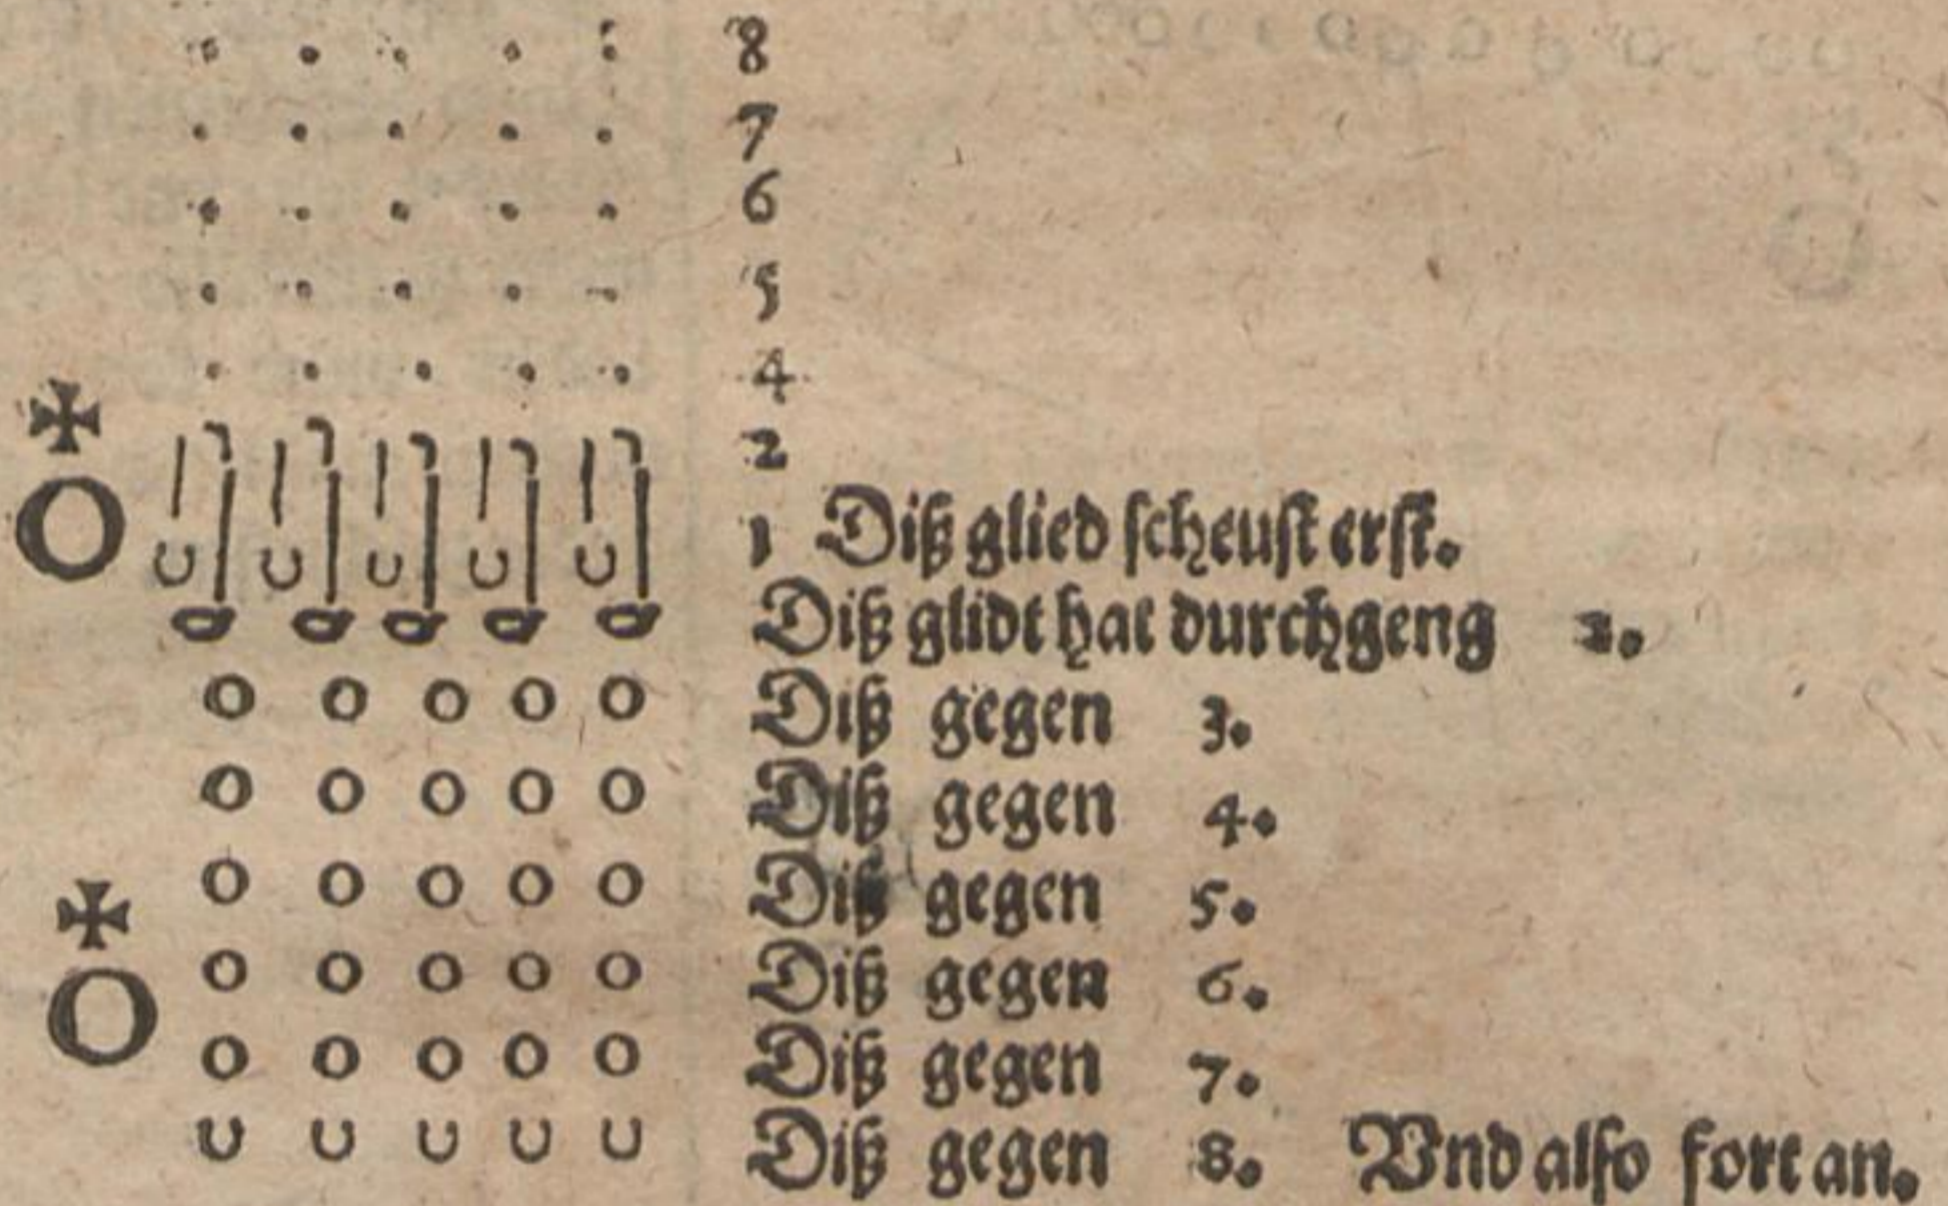 8
7
6
5
4
2
1 Diß glied scheust erst.
Diß glidt hat durchgeng 2.
Diß gegen 3.
Diß gegen 4.
Diß gegen 5.
Diß gegen 6.
Diß gegen 7.
Diß gegen 8. Vnd also fort an.